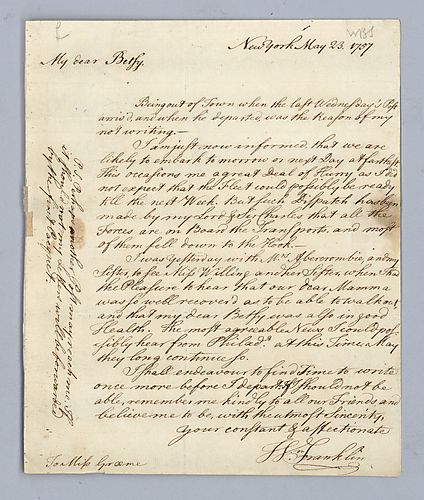 WBJ
New York May 23. 1757
My dear Betsy.
Being out of Town when the last Wednesday's Post
arriv'd, and when he departed was the Reason of my
not writing.—
I am just now informed that we are
likely to embark to morrow or next Day at farthest.
This occasions me a great Deal of Hurry as I did
not expect that the Fleet could possibly be ready
till the next Week. But such Dispatch has been
made by my Lord & Sr. Charles that all the
Forces are on Board the Transports, and most
of them fell down to the Hook.—
I was Yesterday with Mrs. Abercrombie, and my
Sister, to see Miss Willing and her Sister, when I had
the Pleasure to hear that our dear Mamma
was so well recover'd as to be able to walk out,
and that my dear Betsy was also in good
Health. The most agreeable News I could pos-
sibly hear from Philada. at this Time. May
they long continue so.
I shall endeavour to find Time to write
once more before I depart. If I should not be
able, remember me kindly to all our Friends and
believe me to be, with the utmost Sincerity,
Your constant & affectionate
Wm: Franklin
To Miss Græme
P.S.
Post may
if
not my Letter will be forwarded
by the first